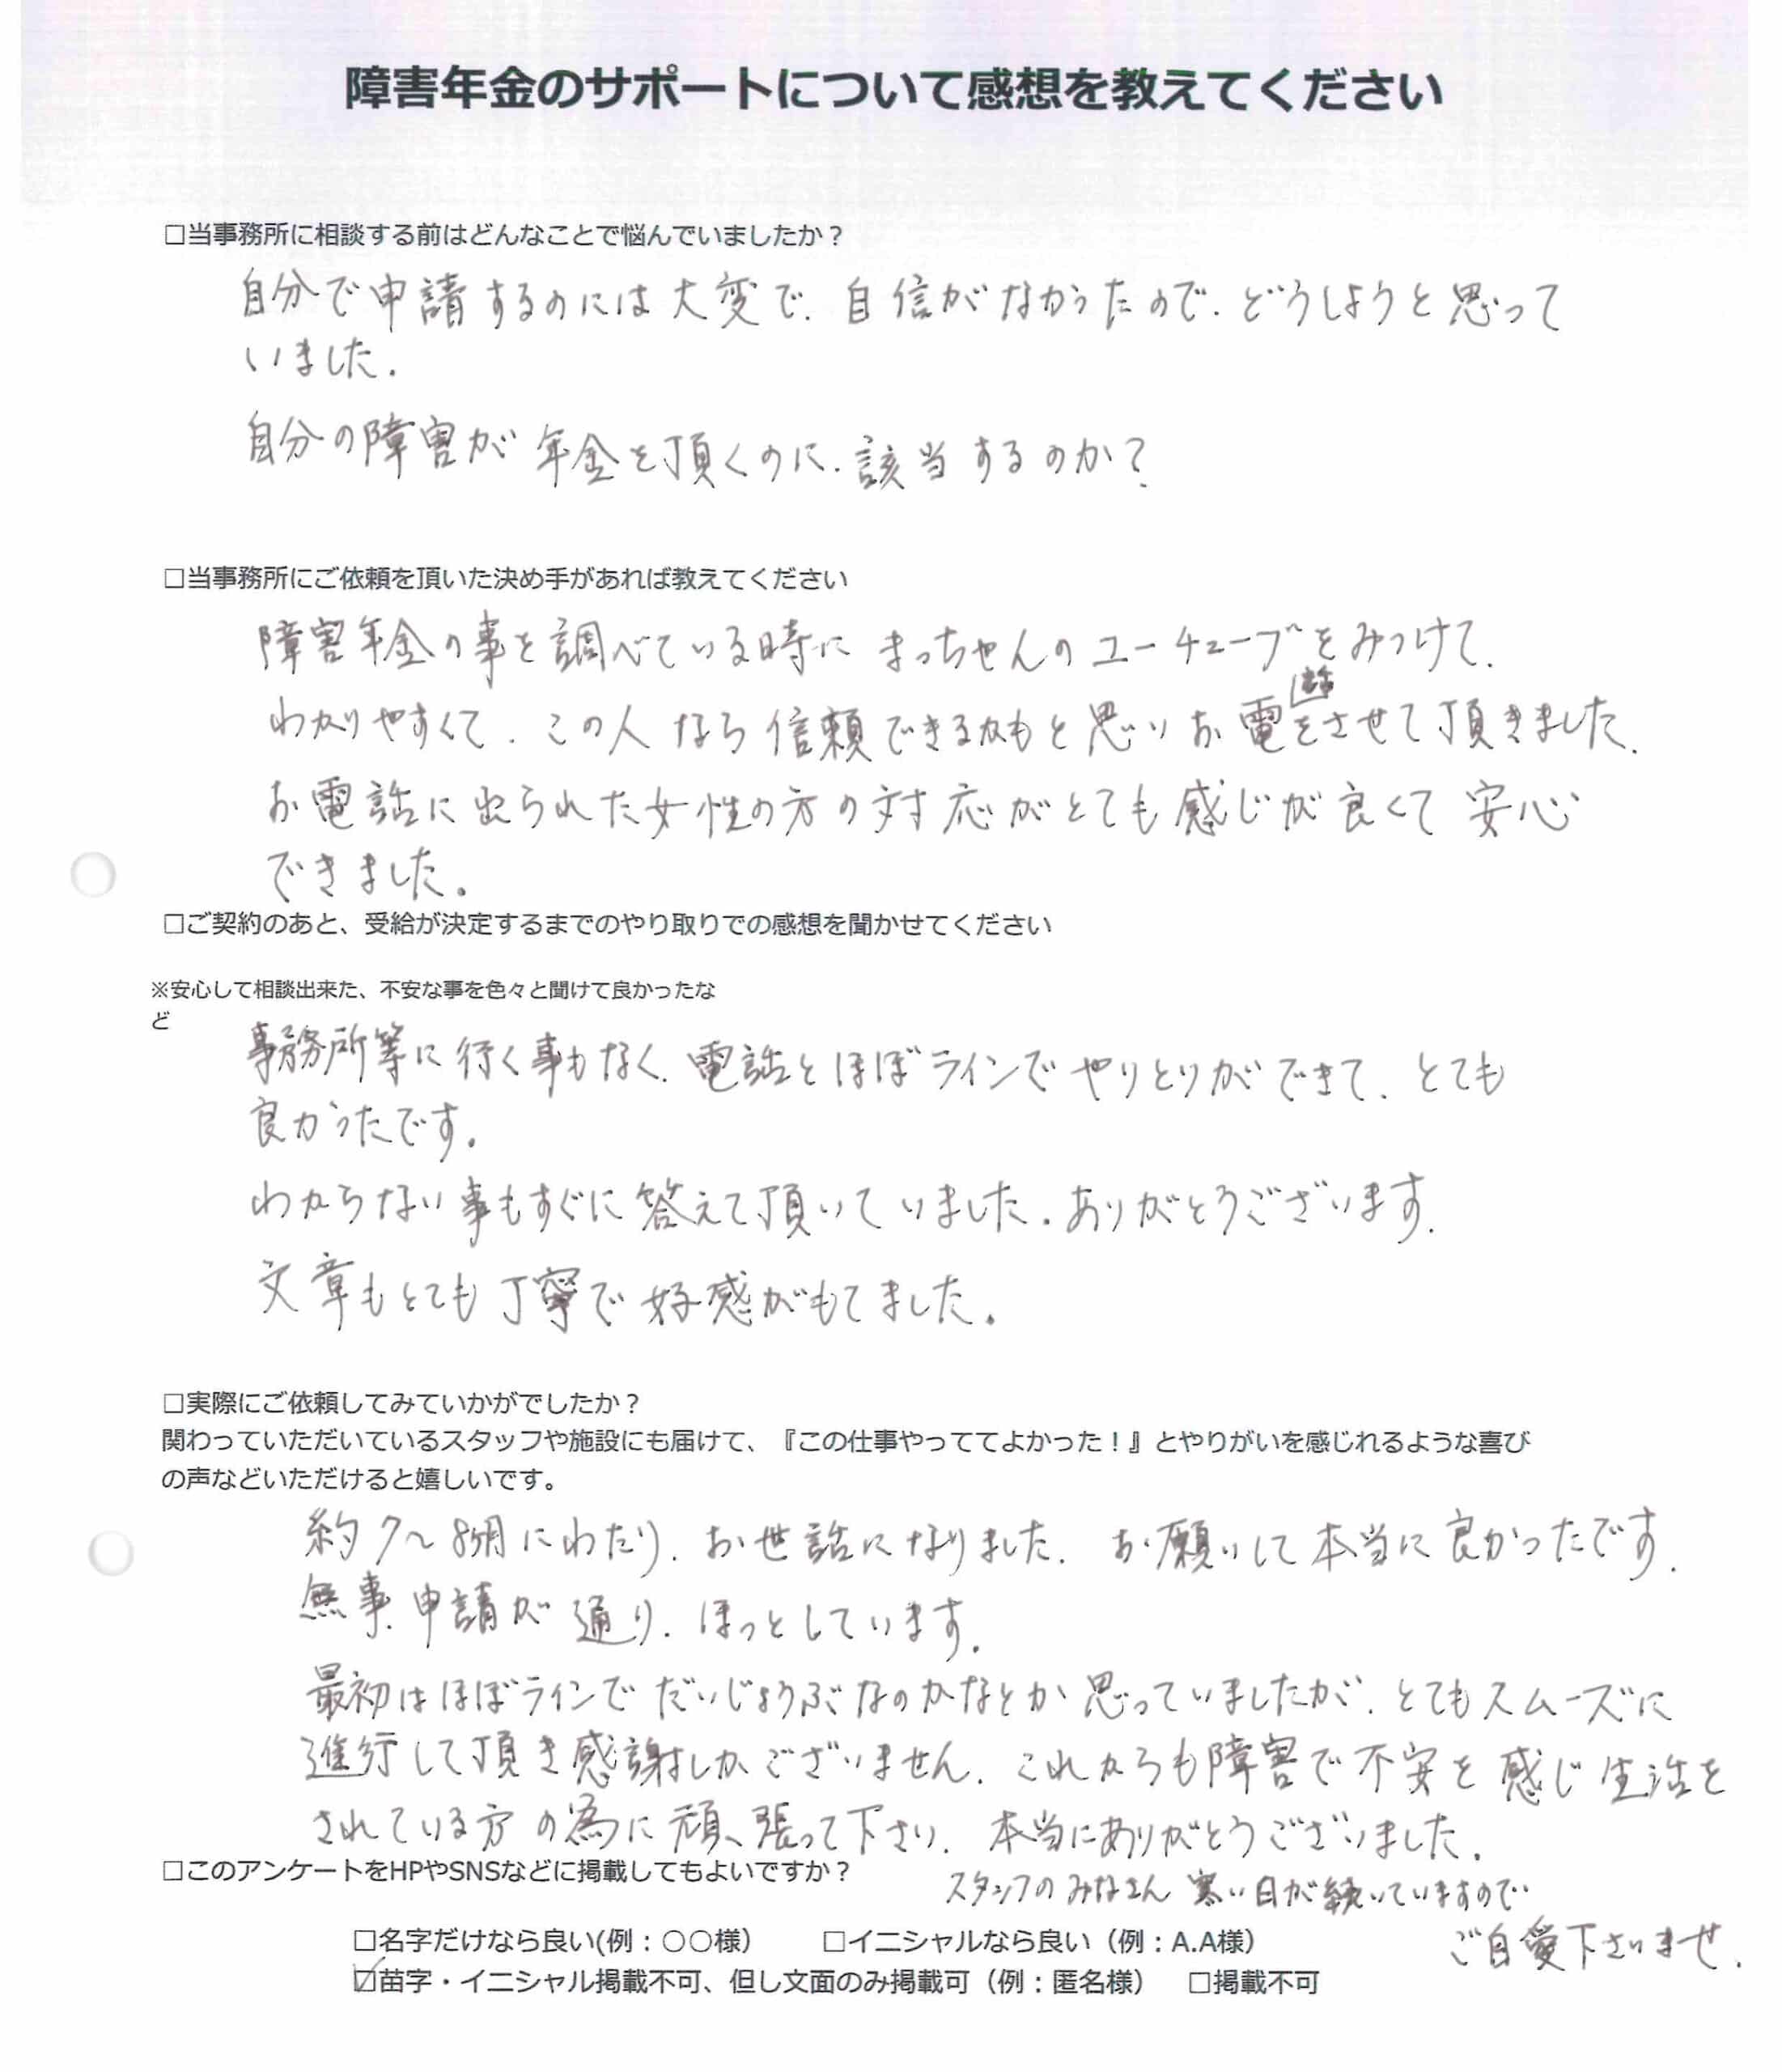 障害年金のサポートについて感想を教えてください
□当事務所に相談する前はどんなことで悩んでいましたか？
自分で申請するのには大変で、自信がなかったので、どうしようと思って
いました。
自分の障害が年金を頂くのに、該当するのか？
□当事務所にご依頼を頂いた決め手があれば教えてください
障害年金の事を調べている時に まっちゃんのユーチューブをみつけて、
わかりやすくて、この人なら信頼できるかもと思いお電話をさせて頂きました。
お電話に出られた女性の方の対応がとても感じが良くて安心
できました。
□ご契約のあと、受給が決定するまでのやり取りでの感想を聞かせてください
※安心して相談出来た、不安な事を色々と聞けて良かったな
ど
事務所等に行く事もなく、電話とほぼラインでやりとりができて、とても
良かったです。
わからない事もすぐに答えて頂いていました。ありがとうございます。
文章もとても丁寧で好感がもてました。
□実際にご依頼してみていかがでしたか？
関わっていただいているスタッフや施設にも届けて、『この仕事やっててよかった！』とやりがいを感じれるような喜び
の声などいただけると嬉しいです。
約7〜8ヶ月にわたり、お世話になりました。お願いして本当に良かったです。
無事、申請が通り、ほっとしています。
最初はほぼラインでだいじょうぶなのかなとか思っていましたが、とてもスムーズに
進行して頂き感謝しかございません。これからも障害で不安を感じ生活を
されている方の為に頑張って下さい。本当にありがとうございました。
□このアンケートをHPやSNSなどに掲載してもよいですか？
スタッフのみなさん 寒い日が続いていますので
ご自愛下さいませ。
□名字だけなら良い(例：○○様） □イニシャルなら良い（例：A.A様）
☑苗字・イニシャル掲載不可、但し文面のみ掲載可（例：匿名様） □掲載不可